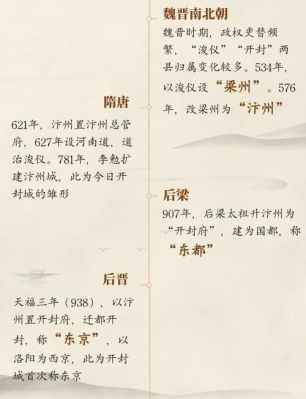 魏晋南北朝
魏晋时期，政权更替频
繁，“浚仪”“开封”两
县归属变化较多。534年，
以浚仪设“梁州”。576
年，改梁州为“汴州”
隋唐
621年，汴州置汴州总管
府，627年设河南道，道
治浚仪。781年，李勉扩
建汴州城，此为今日开
封城的雏形
后梁
907年，后梁太祖升汴州为
“开封府”，建为国都，称
“东都”
后晋
天福三年（938），以汴
州置开封府，迁都开
封，称“东京”，以
洛阳为西京，此为开封
城首次称东京